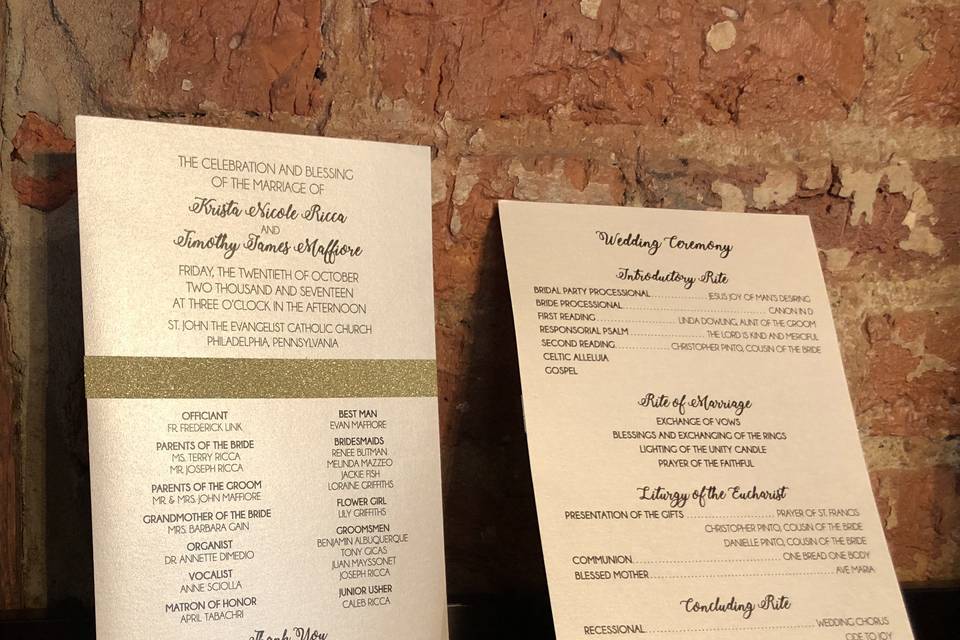 THE CELEBRATION AND BLESSING
OF THE MARRIAGE OF
Krista Nicole Ricca
AND
Timothy James Maffiore
FRIDAY, THE TWENTIETH OF OCTOBER
TWO THOUSAND AND SEVENTEEN
AT THREE O'CLOCK IN THE AFTERNOON
ST. JOHN THE EVANGELIST CATHOLIC CHURCH
PHILADELPHIA, PENNSYLVANIA
OFFICIANT
FR. FREDERICK LINK
PARENTS OF THE BRIDE
MS. TERRY RICCA
MR. JOSEPH RICCA
PARENTS OF THE GROOM
MR. & MRS. JOHN MAFFIORE
GRANDMOTHER OF THE BRIDE
MRS. BARBARA GAIN
ORGANIST
DR. ANNETTE DIMEDIO
VOCALIST
ANNE SCIOLLA
MATRON OF HONOR
APRIL TABACHRI
BEST MAN
EVAN MAFFIORE
BRIDESMAIDS
RENEE BLITMAN
MELINDA MAZZEO
JACKIE FISH
LORAINE GRIFFITHS
FLOWER GIRL
LILY GRIFFITHS
GROOMSMEN
BENJAMIN ALBUQUERQUE
TONY GICAS
JUAN MAYSSONET
JOSEPH RICCA
JUNIOR USHER
CALEB RICCA
Thank You
Wedding Ceremony
Introductory Rite
BRIDAL PARTY PROCESSIONAL JESUS JOY OF MAN'S DESIRING
BRIDE PROCESSIONAL CANON IN D
FIRST READING LINDA DOWLING, AUNT OF THE GROOM
RESPONSORIAL PSALM THE LORD IS KIND AND MERCIFUL
SECOND READING CHRISTOPHER PINTO, COUSIN OF THE BRIDE
CELTIC ALLELUIA
GOSPEL
Rite of Marriage
EXCHANGE OF VOWS
BLESSINGS AND EXCHANGING OF THE RINGS
LIGHTING OF THE UNITY CANDLE
PRAYER OF THE FAITHFUL
Liturgy of the Eucharist
PRESENTATION OF THE GIFTS PRAYER OF ST. FRANCIS
CHRISTOPHER PINTO, COUSIN OF THE BRIDE
DANIELLE PINTO, COUSIN OF THE BRIDE
COMMUNION ONE BREAD ONE BODY
BLESSED MOTHER AVE MARIA
Concluding Rite
RECESSIONAL WEDDING CHORUS
ODE TO JOY